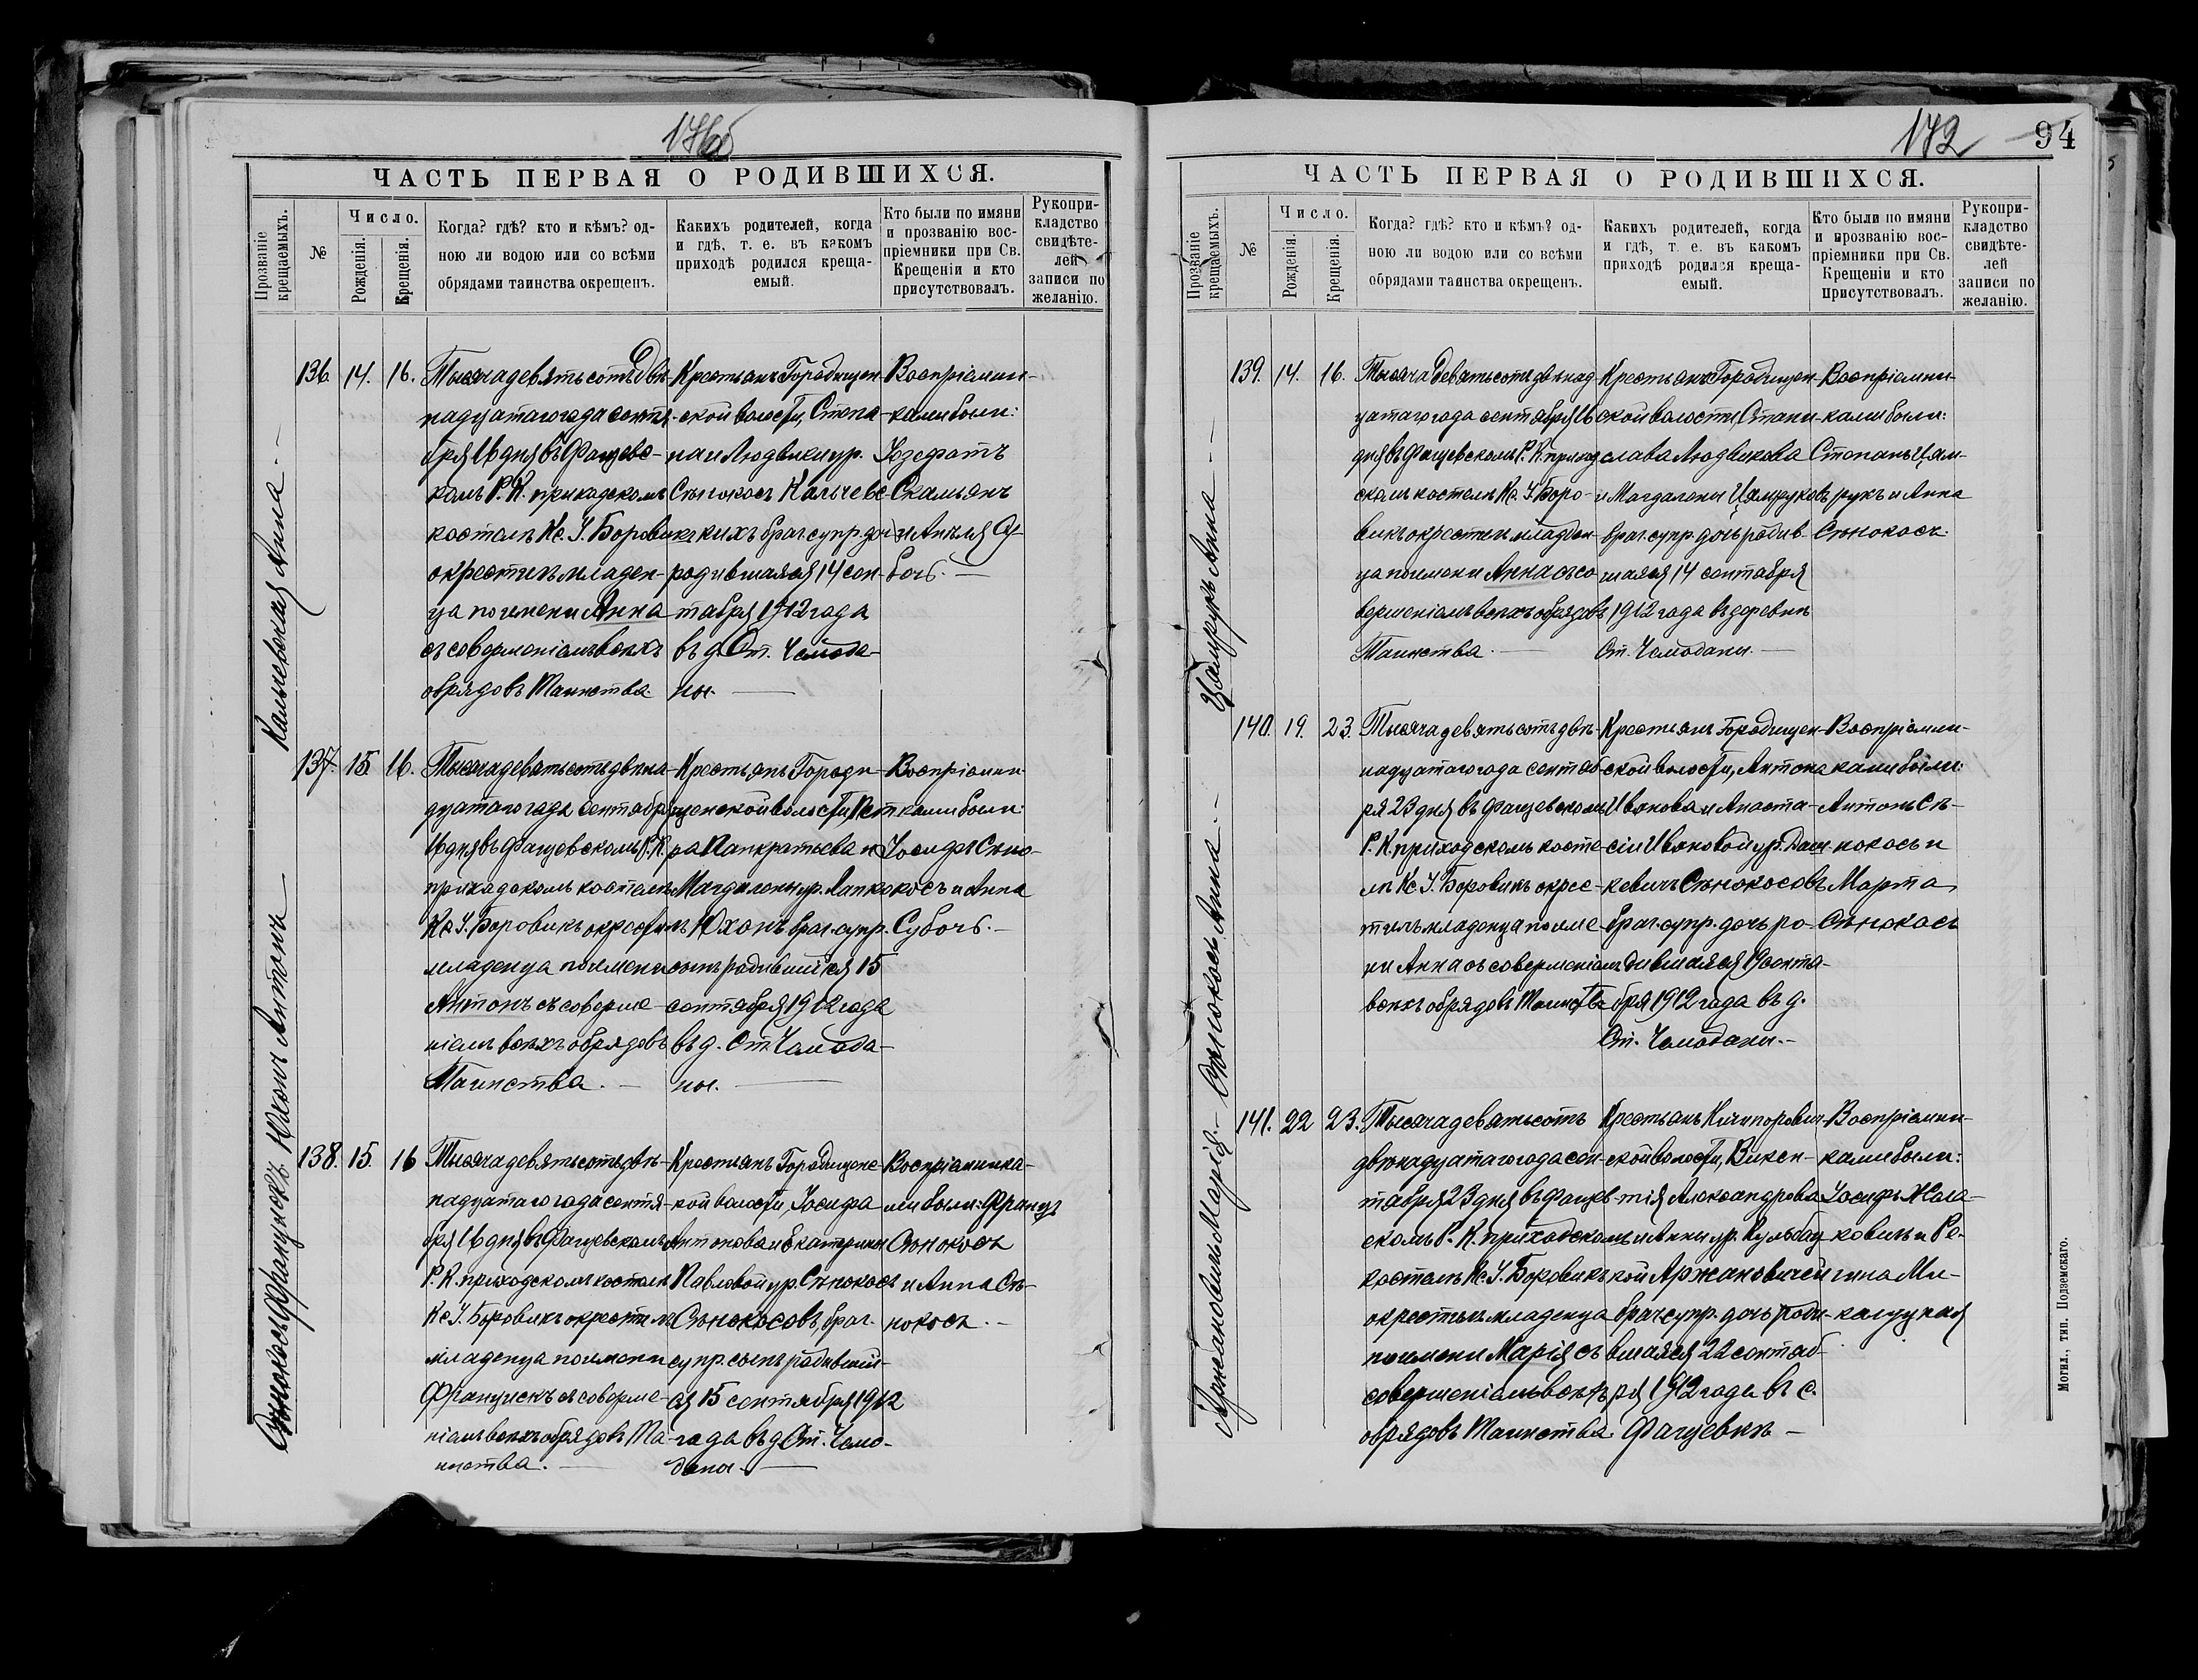 172
94
ЧАСТЬ ПЕРВАЯ О РОДИВШИХСЯ.
Прозваніе крещаемыхъ.
№
Число.
Рожденія.
Крещенія.
Когда? гдѣ? кто и кѣмъ? од-
ною ли водою или со всѣми
обрядами таинства окрещенъ.
Какихъ родителей, когда
и гдѣ, т. е. въ какомъ
приходѣ родился креща-
емый.
Кто были по имяни
и прозванію вос-
пріемники при Св.
Крещеніи и кто
присутствовалъ.
Рукопри-
кладство
свидѣте-
лей
записи по
желанію.
Кальчевская Анна.
136. 14. 16.
Тысяча девятьсотъ двѣ-
надцатаго года сентя-
бря 16 дня въ Фащевс-
комъ Р. К. приходскомъ
костелѣ Кс. І. Боровикъ
окрестилъ младен-
ца по имени Анна
съ совершеніемъ всѣхъ
обрядовъ Таинства.
Крестьянъ Городищен-
ской волости, Степа-
на и Людвики ур.
Сѣнокосъ Кальчевс-
кихъ брач. супр. дочь
родившаяся 14 сен-
тября 1912 года
въ д. Ст. Чемода-
ны.
Воспріемни-
ками были:
Іозефатъ
Скамьянъ
и Анеля Су-
бочь.
Юхонъ Антонъ
137. 15. 16.
Тысяча девятьсотъ двѣна-
дцатаго года сентября
16 дня въ Фащевскомъ Р. К.
приходскомъ костелѣ
Кс. І. Боровикъ окрестилъ
младенца по имени
Антонъ съ соверше-
ніемъ всѣхъ обрядовъ
Таинства.
Крестьянъ Городи-
щенской волости, Пет-
ра Панкратьева и
Магдалены ур. Лапко
Юхонъ брач. супр.
сынъ родившійся 15
сентября 1912 года
въ д. Ст. Чемода-
ны.
Воспріемни-
ками были:
Іосифъ Сѣно-
косъ и Анна
Субочь.
Сѣнокосъ Францискъ
138. 15. 16
Тысяча девятьсотъ двѣ-
надцатаго года сентя-
бря 16 дня въ Фащевскомъ
Р. К. приходскомъ костелѣ
Кс. І. Боровикъ окрестилъ
младенца по имени
Францискъ съ соверше-
ніемъ всѣхъ обрядовъ Та-
инства.
Крестьянъ Городищенс-
кой волости, Іосифа
Антонова и Екатерины
Павловой ур. Сѣнокосъ
Сѣнокосовъ, брач.
супр. сынъ родивший-
ся 15 сентября 1912
года въ д. Ст. Чемо-
даны.
Воспріемника-
ми были: Францъ
Сѣнокосъ
и Анна Сѣ-
нокосъ.
ЧАСТЬ ПЕРВАЯ О РОДИВШИХСЯ.
Прозваніе крещаемыхъ.
№
Число.
Рожденія.
Крещенія.
Когда? гдѣ? кто и кѣмъ? од-
ною ли водою или со всѣми
обрядами таинства окрещенъ.
Какихъ родителей, когда
и гдѣ, т. е. въ какомъ
приходѣ родился креща-
емый.
Кто были по имяни
и прозванію вос-
пріемники при Св.
Крещеніи и кто
присутствовалъ.
Рукопри-
кладство
свидѣте-
лей
записи по
желанію.
Цямрукъ Анна
139. 14. 16.
Тысяча девятьсотъ двѣнад-
цатаго года сентября 16
дня въ Фащевскомъ Р. К. приход-
скомъ костелѣ Кс. І. Боро-
викъ окрестилъ младен-
ца по имени Анна съ со-
вершеніемъ всѣхъ обрядовъ
Таинства.
Крестьянъ Городищен-
ской волости, Стани-
слава Людвикова
и Магдалены Цямруковъ
брач. супр. дочь родив-
шаяся 14 сентября
1912 года въ деревнѣ
Ст. Чемоданы.
Воспріемни-
ками были:
Степанъ Цям-
рукъ и Анна
Сѣнокосъ.
Сѣнокосъ Анна.
140. 19. 23.
Тысяча девятьсотъ двѣ-
надцатаго года сентяб-
ря 23 дня въ Фащевскомъ
Р. К. приходскомъ косте-
лѣ Кс. І. Боровикъ окрес-
тилъ младенца по име-
ни Анна съ совершеніемъ
всѣхъ обрядовъ Таинства
Крестьянъ Городищен-
ской волости, Антона
Иванова и Анаста-
сіи Ивановой ур. Даш-
кевичъ Сѣнокосовъ
брач. супр. дочь ро-
дившаяся 19 сентя-
бря 1912 года въ д.
Ст. Чемоданы.
Воспріемни-
ками были:
Антонъ Сѣ-
нокосъ и
Марта
Сѣнокосъ
Аржановичъ Марія.
141. 22 23.
Тысяча девятьсотъ
двѣнадцатаго года сен-
тября 23 дня въ Фащев-
скомъ Р. К. приходскомъ
костелѣ Кс. І. Боровикъ
окрестилъ младенца
по имени Марія съ
совершеніемъ всѣхъ
обрядовъ Таинства.
Крестьянъ
ской волости, Викен-
тія Александрова
и Анны ур.
Аржановичей
брач. супр. дочь роди-
вшаяся 22 сентяб-
ря 1912 года въ с.
Фащевкѣ
Воспріемни-
ками были:
Іосифъ
и Ре-
гина
Могил., тип. Подземскаго.